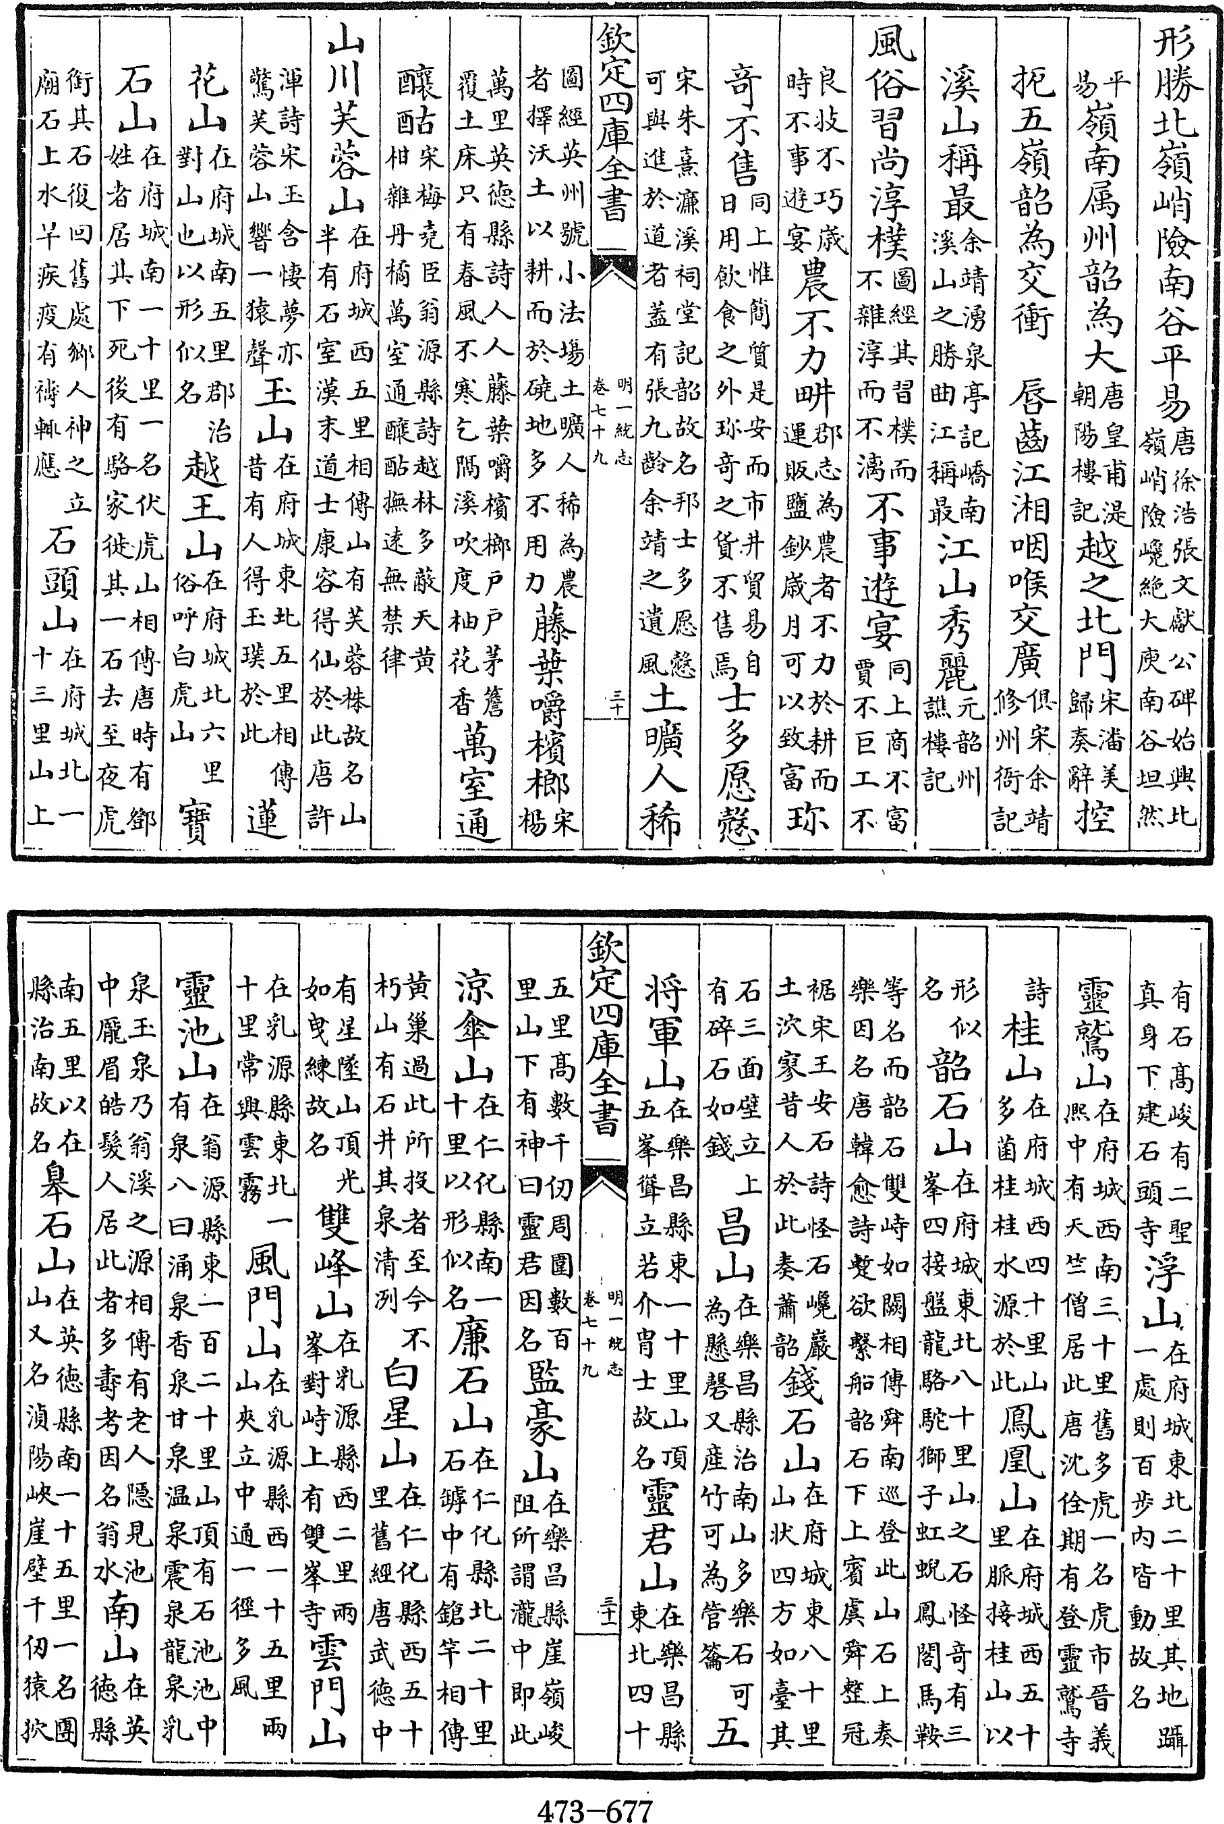 形勝北嶺峭險南谷平易唐徐浩張文獻公碑始興北嶺峭險巉絶大庾南谷坦然
平易嶺南属州韶為大唐皇甫湜朝陽樓記越之北門宋潘美歸奏辭控
扼五嶺韶為交衝 唇齒江湘咽喉交廣俱宋余靖修州衙記
溪山稱最余靖湧泉亭記嶠南溪山之勝曲江稱最江山秀麗元韶州譙樓記
風俗習尚淳樸圖經其習樸而不雜淳而不漓不事遊宴同上商不富賈不巨工不
良技不巧歳時不事遊宴農不力畊郡志為農者不力於耕而運販鹽鈔歳月可以致富珎
奇不售同上惟簡質是安而市井貿易自日用飲食之外珎奇之貨不售焉士多愿慤
宋朱熹濂溪祠堂記韶故名邦士多愿慤可與進於道者蓋有張九齡余靖之遺風土曠人稀
欽定四庫全書 明一統志 卷七十九 三十
圖經英州號小法塲土曠人稀為農者擇沃土以耕而於磽地多不用力藤葉嚼檳榔宋楊
萬里英德縣詩人人藤葉嚼檳榔戸戸茅簷覆土床只有春風不寒乞隅溪吹度柚花香萬室通
釀酤宋梅堯臣翁源縣詩越林多蔽天黄柑雜丹橘萬室通釀酤撫逺無禁律
山川芙蓉山在府城西五里相傳山有芙蓉株故名山半有石室漢末道士康容得仙於此唐許
渾詩宋玉含悽夢亦驚芙蓉山響一猿聲玉山在府城東北五里相傳昔有人得玉璞於此蓮
花山在府城南五里郡治對山也以形似名越王山在府城北六里俗呼白虎山寶
石山在府城南一十里一名伏虎山相傳唐時有鄧姓者居其下死後有駱家徙其一石去至夜虎
銜其石復回舊處鄉人神之立廟石上水旱疾疫有禱輒應石頭山在府城北一十三里山上
有石髙峻有二聖真身下建石頭寺浮山在府城東北二十里其地躡一處則百步内皆動故名
靈鷲山在府城西南三十里舊多虎一名虎市晉義熈中有天竺僧居此唐沈佺期有登靈鷲寺
詩桂山在府城西四十里山多菌桂桂水源於此鳳凰山在府城西五十里脈接桂山以
形似名韶石山在府城東北八十里山之石怪奇有三峯四接盤龍駱駝獅子虹蜺鳳閣馬鞍
等名而韶石雙峙如闕相傳舜南巡登此山石上奏樂因名唐韓愈詩蹔欲繫船韶石下上賓虞舜整冠
裾宋王安石詩怪石巉巖土泬寥昔人於此奏蕭韶錢石山在府城東八十里山狀四方如臺其
石三面壁立上有碎石如錢昌山在樂昌縣治南山多樂石可為懸磬又産竹可為管籥五
将軍山在樂昌縣東一十里山頂五峯聳立若介胄士故名靈君山在樂昌縣東北四十
欽定四庫全書 明一統志 卷七十九 三十一
五里髙數千仞周圍數百里山下有神曰靈君因名監豪山在樂昌縣崖嶺峻阻所謂瀧中即此
涼傘山在仁化縣南一十里以形似名廉石山在仁化縣北二十里石罅中有鎗竿相傳
黄巢過此所投者至今不朽山有石井其泉清冽白星山在仁化縣西五十里舊經唐武德中
有星墜山頂光如曳練故名雙峰山在乳源縣西二里兩峯對峙上有雙峯寺雲門山
在乳源縣東北一十里常興雲霧風門山在乳源縣西一十五里兩山夾立中通一徑多風
靈池山在翁源縣東一百二十里山頂有石池池中有泉八曰涌泉香泉甘泉温泉震泉龍泉乳
泉玉泉乃翁溪之源相傳有老人隠見池中厖眉皓髮人居此者多夀考因名翁水南山在英德縣
南五里以在縣治南故名皋石山在英德縣南一十五里一名團山又名湞陽峽崖壁千仞猿狖
473-677